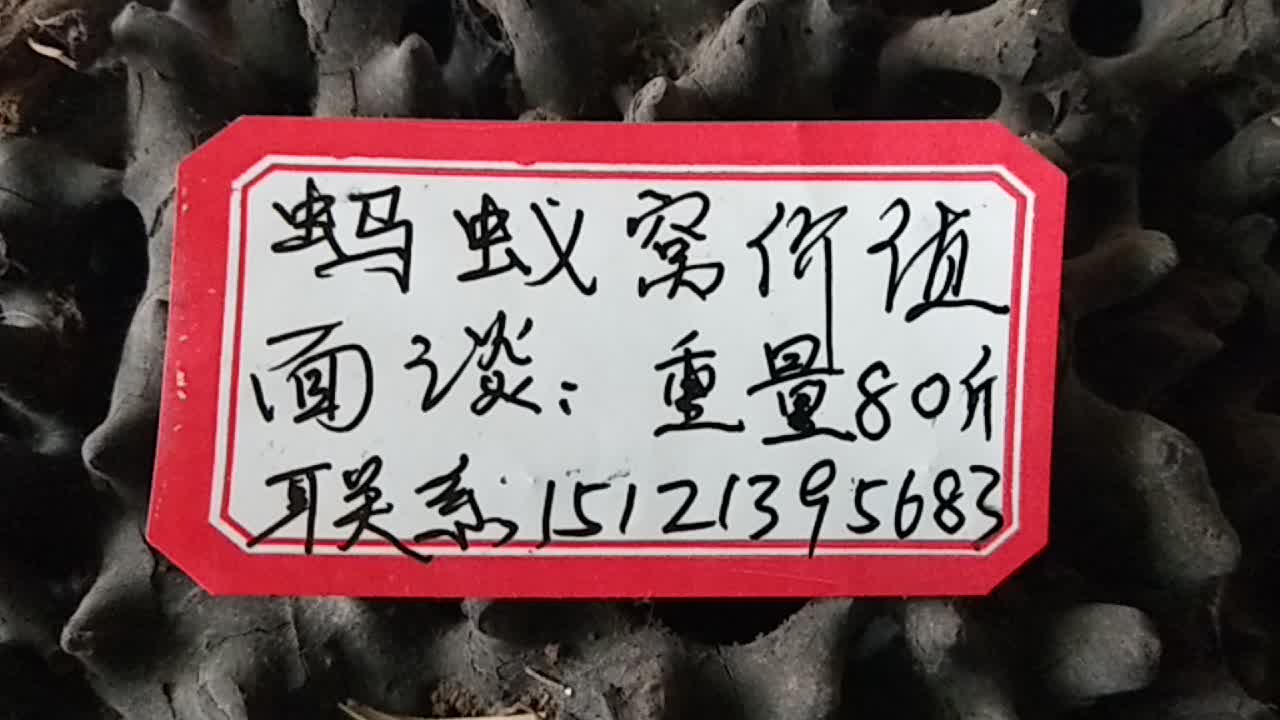 蚂蚁窝价值
面谈：重量80斤
联系：15121395683